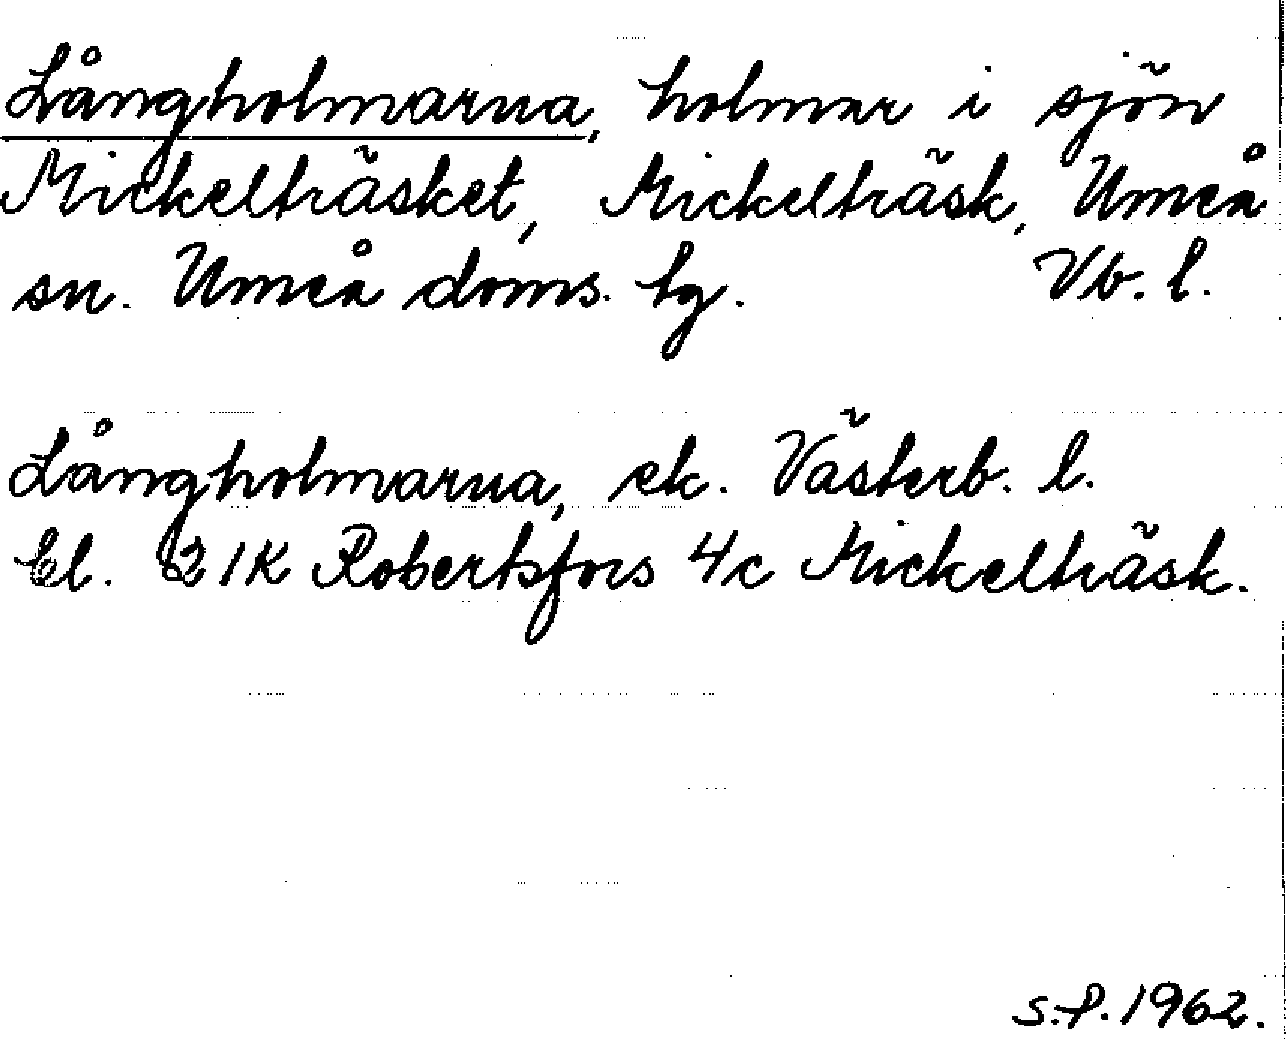 Långholmarna, holmar i sjön
Mickelträsket, Mickelträsk, Umeå
sn. Umeå doms. tg. Vb. l.
Långholmarna, ek. Västerb. l.
bl. 21K Robertsfors 4c Mickelträsk.
S.P. 1962.